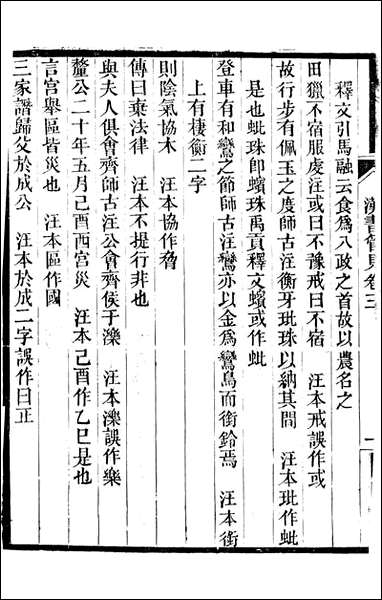 漢書管見卷三
釋文引馬融云食為八政之首故以農名之
田獵不宿服虔注或曰不豫戒曰不宿　汪本戒誤作或
故行步有佩玉之度師古注衡牙玭珠以納其間　汪本玭作蚍
是也蚍珠卽蠙珠禹貢釋文蠙或作蚍
登車有和鸞之節師古注鸞亦以金為鸞鳥而銜鈴焉　汪本銜
上有棲衡二字
則陰氣協木　汪本協作脅
傳曰棄法律　汪本不提行非也
與夫人俱會齊師古注公會齊侯于濼　汪本濼誤作樂
釐公二十年五月己酉西宮災　汪本己酉作乙巳是也
言宮舉區皆災也　汪本區作國
三家譖歸父於成公　汪本於成二字誤作曰正